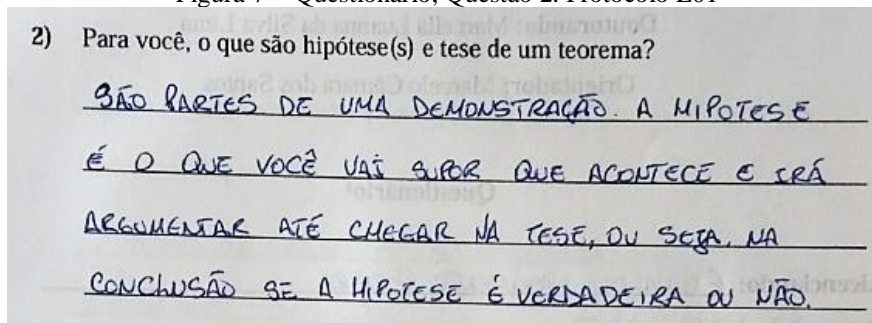 2) Para você, o que são hipótese(s) e tese de um teorema?
SÃO PARTES DE UMA DEMONSTRAÇÃO. A HIPOTESE
É O QUE VOCÊ VAI SUPOR QUE ACONTECE E IRÁ
ARGUMENTAR ATÉ CHEGAR NA TESE, OU SEJA, NA
CONCLUSÃO SE A HIPOTESE É VERDADEIRA OU NÃO.